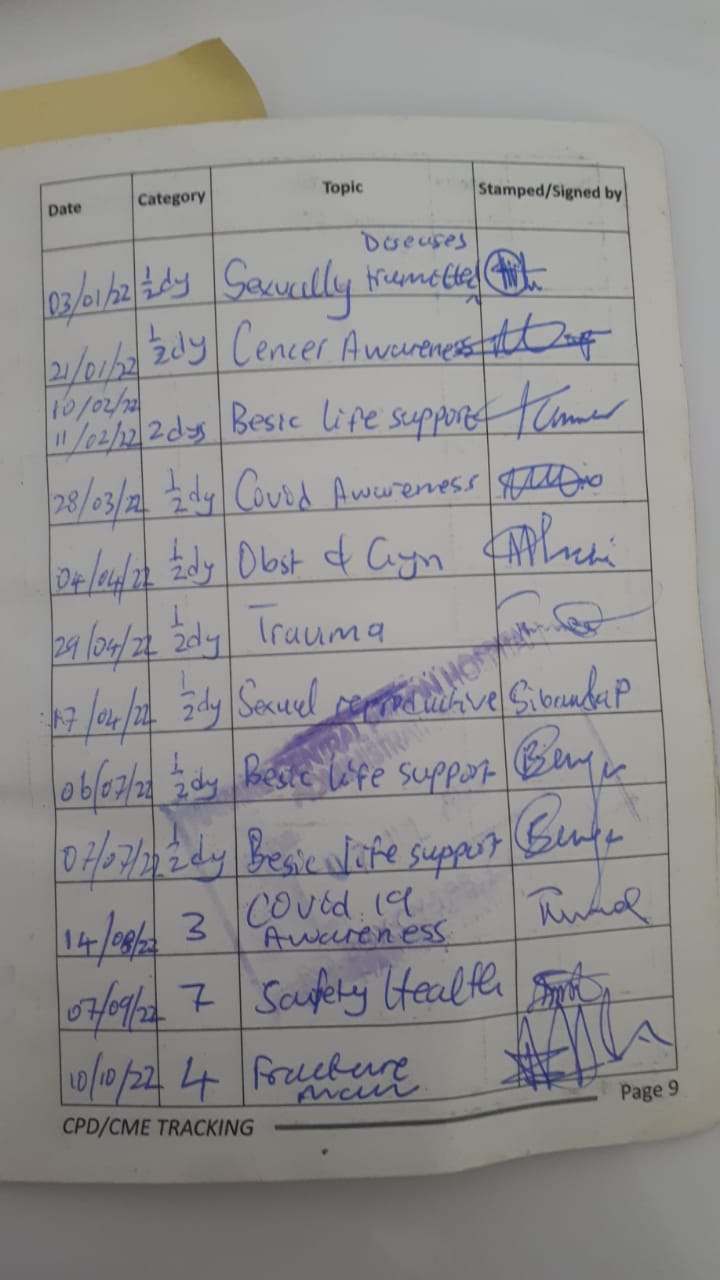 Date Category Topic Stamped/Signed by
Diseases
03/01/22 ½dy Sexually
21/01/22 ½dy Cencer Awareness
10/02/22
11/02/22 2dys Besic life support
28/03/22 ½dy Covid Awareness
04/04/22 ½dy Obst & Gyn
29/04/22 ½dy Trauma
17/04/22 ½dy Sexuel reproductive Sibanda P
06/07/22 ½dy Besic life support
07/07/22 ½dy Besic life support
COVID 19
14/08/22 3 Awareness
07/09/22 7 Health
10/10/22 4 Fracture
CPD/CME TRACKING Page 9